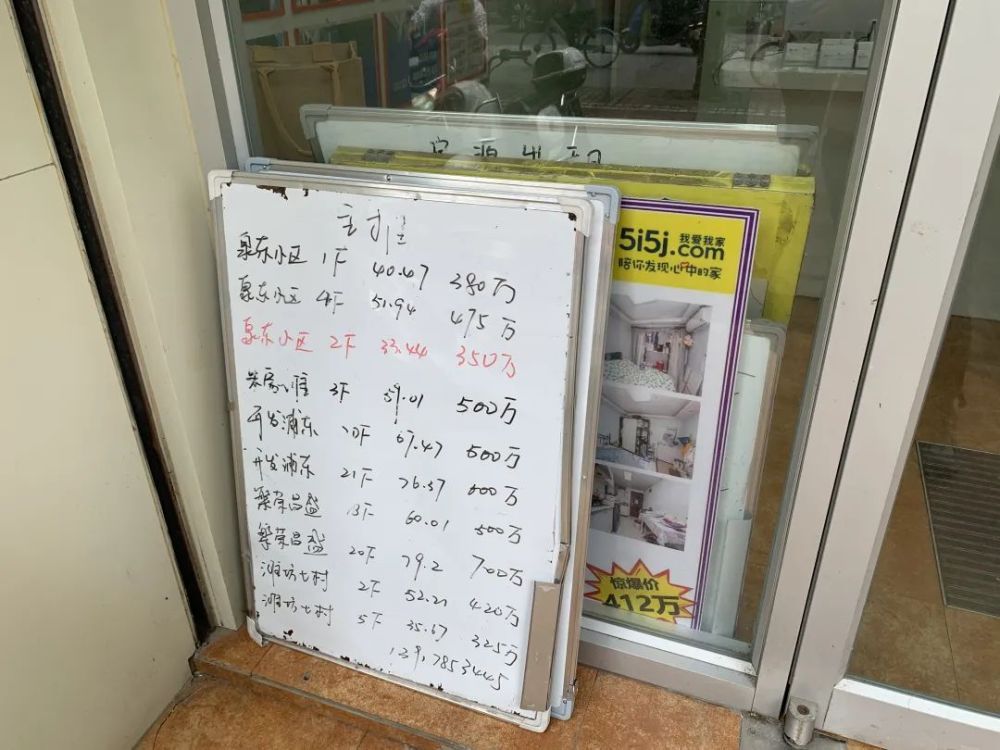 房源出租
主推
泉东小区 1F 40.47 380万
泉东小区 4F 51.94 475万
泉东小区 2F 33.44 350万
3F 59.01 500万
开发浦东 10F 67.47 500万
开发浦东 21F 76.57 600万
繁荣昌盛 13F 60.01 500万
繁荣昌盛 20F 79.2 700万
潍坊七村 2F 52.21 420万
潍坊七村 5F 35.67 325万
13917853445
5i5j.com 我爱我家
陪你发现心中的家
惊爆价
412万